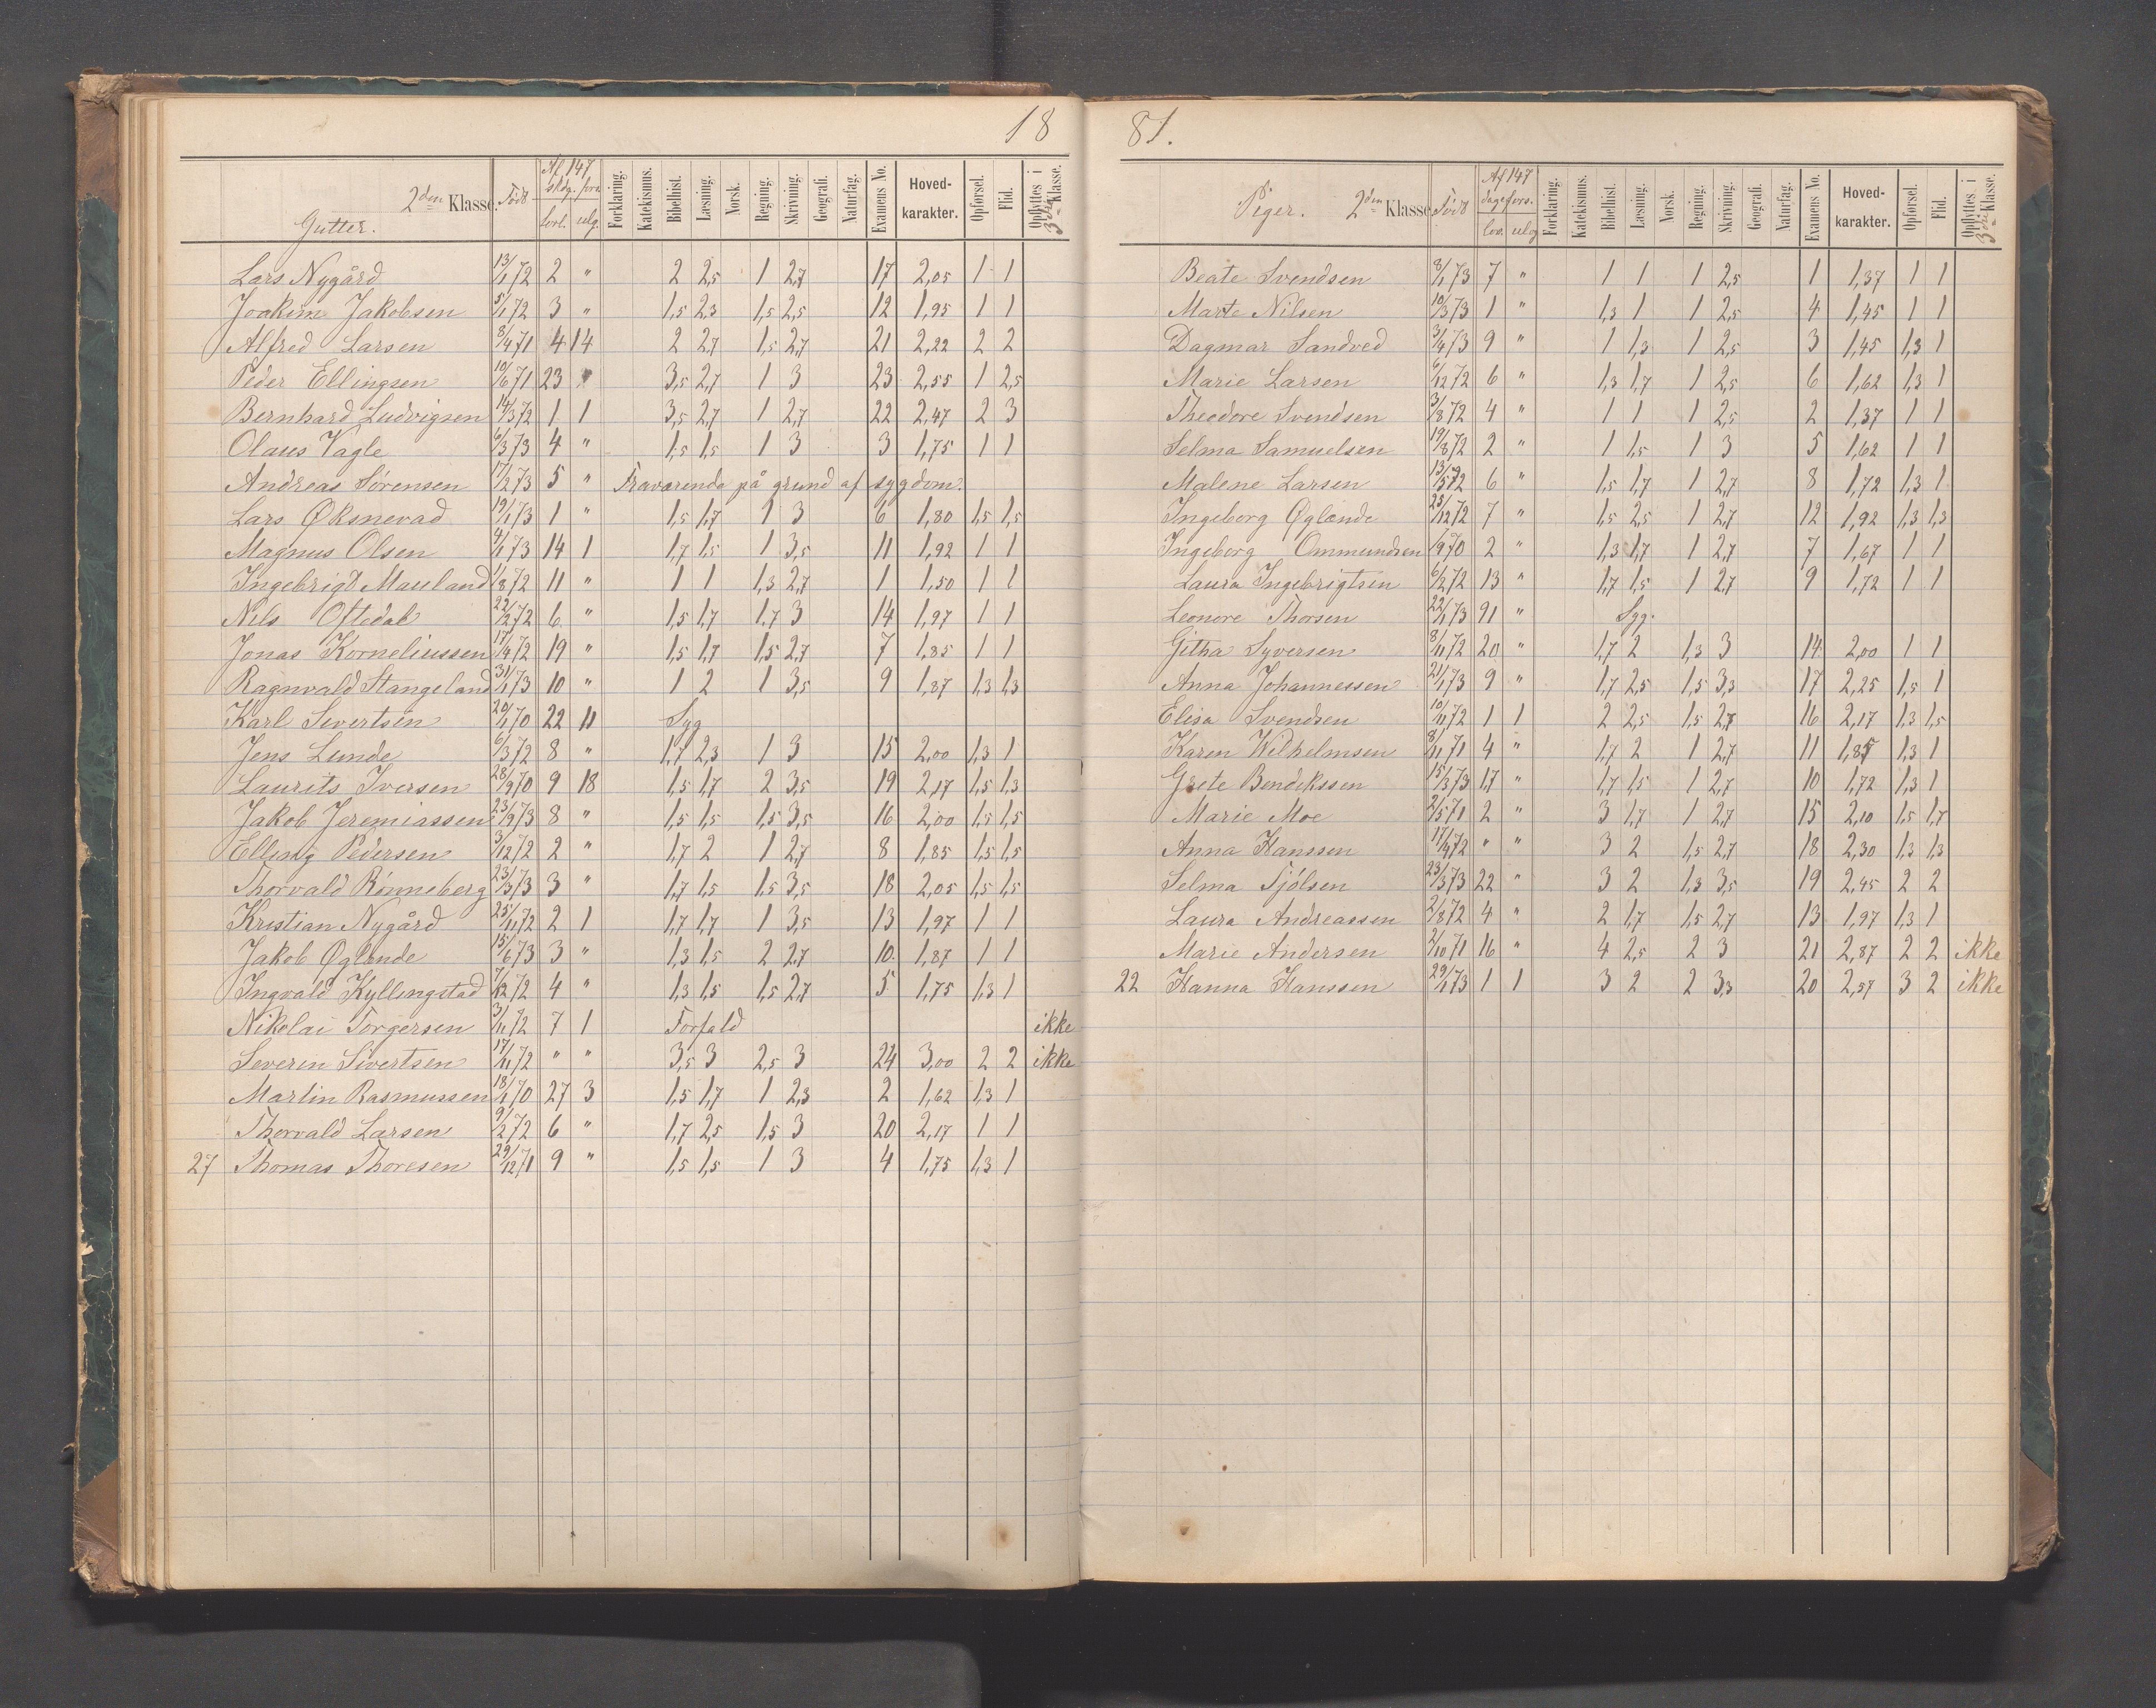 18
Gutter. 2den Klasse. Født Af 147 skdg. fors. lovl. ulg. Forklaring. Katekismus. Bibelhist. Læsning. Norsk. Regning. Skrivning. Geografi. Naturfag. Examens No. Hoved-karakter. Opførsel. Flid. Opflyttes i 3die Klasse.
Lars Nygård 13/1 72 2 " 2 2,5 1 2,7 17 2,05 1 1
Joakim Jakobsen 5/1 72 3 " 1,5 2,3 1,5 2,5 12 1,95 1 1
Alfred Larsen 8/4 71 4 14 2 2,7 1,5 2,7 21 2,22 2 2
Peder Ellingsen 10/6 71 23 " 3,5 2,7 1 3 23 2,55 1 2,5
Bernhard Ludvigsen 14/3 72 1 1 3,5 2,7 1 2,7 22 2,47 2 3
Olaus Vagle 6/3 73 4 " 1,5 1,5 1 3 3 1,75 1 1
Andreas Sørensen 17/2 73 5 " Fraværende på grund af sygdom.
Lars Øksnevad 19/1 73 1 " 1,5 1,7 1 3 6 1,80 1,5 1,5
Magnus Olsen 4/1 73 14 1 1,7 1,5 1 3,5 11 1,92 1 1
Ingebrigt Mauland 1/8 72 11 " 1 1 1,3 2,7 1 1,50 1 1
Nils Oftedal 22/2 72 6 " 1,5 1,7 1,7 3 14 1,97 1 1
Jonas Korneliussen 17/4 72 19 " 1,5 1,7 1,5 2,7 7 1,85 1 1
Ragnvald Stangeland 31/1 73 10 " 1 2 1 3,5 9 1,87 1,3 1,3
Karl Sivertsen 20/1 70 22 11 Syg
Jens Lunde 6/3 72 8 " 1,7 2,3 1 3 15 2,00 1,3 1
Laurits Iversen 28/9 70 9 18 1,5 1,7 2 3,5 19 2,17 1,5 1,3
Jakob Jeremiassen 23/9 73 8 " 1,5 1,5 1,5 3,5 16 2,00 1,5 1,5
Elling Pedersen 3/12 72 2 " 1,7 2 1 2,7 8 1,85 1,5 1,5
Thorvald Rønneberg 23/3 73 3 " 1,7 1,5 1,5 3,5 18 2,05 1,5 1,5
Kristian Nygård 25/11 72 2 1 1,7 1,7 1 3,5 13 1,97 1 1
Jakob Øglende 15/6 73 3 " 1,3 1,5 2 2,7 10 1,87 1 1
Ingvald Kyllingstad 7/12 72 4 " 1,3 1,5 1,5 2,7 5 1,75 1,3 1
Nikolai Torgersen 3/11 72 7 1 Forfald ikke
Severin Sivertsen 17/11 72 " " 3,5 3 2,5 3 24 3,00 2 2 ikke
Martin Rasmussen 18/1 70 27 3 1,5 1,7 1 2,3 2 1,62 1,3 1
Thorvald Larsen 9/2 72 6 " 1,7 2,5 1,5 3 20 2,17 1 1
27 Thomas Thoresen 29/12 71 9 " 1,5 1,5 1 3 4 1,75 1,3 1
81.
Piger. 2den Klasse. Født Af 147 dage fors. lov. ulov Forklaring. Katekismus. Bibelhist. Læsning. Norsk. Regning. Skrivning. Geografi. Naturfag. Examens No. Hoved-karakter. Opførsel. Flid. Opflyttes i 3die Klasse.
Beate Svendsen 8/1 73 7 " 1 1 1 2,5 1 1,37 1 1
Marte Nilsen 10/3 73 1 " 1,3 1 1 2,5 4 1,45 1 1
Dagmar Sandved 3/4 73 9 " 1 1,3 1 2,5 3 1,45 1,3 1
Marie Larsen 6/12 72 6 " 1,3 1,7 1 2,5 6 1,62 1,3 1
Theodore Svendsen 3/8 72 4 " 1 1 1 2,5 2 1,37 1 1
Selma Samuelsen 19/8 72 2 " 1 1,5 1 3 5 1,62 1 1
Malene Larsen 13/5 72 6 " 1,5 1,7 1 2,7 8 1,72 1,3 1
Ingeborg Øglænde 25/12 72 7 " 1,5 2,5 1 2,7 12 1,92 1,3 1,3
Ingeborg Ommundsen 1/9 70 2 " 1,3 1,7 1 2,7 7 1,67 1 1
Laura Ingebrigtsen 6/2 72 13 " 1,7 1,5 1 2,7 9 1,72 1 1
Leonore Thorsen 22/1 73 91 " Syg.
Githa Syversen 8/11 72 20 " 1,7 2 1,3 3 14 2,00 1 1
Anna Johannessen 21/1 73 9 " 1,7 2,5 1,5 3,3 17 2,25 1,5 1
Elisa Svendsen 10/11 72 1 1 2 2,5 1,5 2,7 16 2,17 1,3 1,5
Karen Wilhelmsen 8/11 71 4 " 1,7 2 1 2,7 11 1,85 1,3 1
Grete Bendikssen 15/3 73 17 " 1,7 1,5 1 2,7 10 1,72 1,3 1
Marie Moe 2/5 71 2 " 3 1,7 1 2,7 15 2,10 1,5 1,7
Anna Hanssen 17/4 72 " " 3 2 1,5 2,7 18 2,30 1,3 1,3
Selma Sjølsen 23/3 73 22 " 3 2 1,3 3,5 19 2,45 2 2
Laura Andreassen 2/8 72 4 " 2 1,7 1,5 2,7 13 1,97 1,3 1
Marie Andersen 2/10 71 16 " 4 2,5 2 3 21 2,87 2 2 ikke
22 Hanna Hanssen 29/1 73 1 1 3 2 2 3,3 20 2,57 3 2 ikke